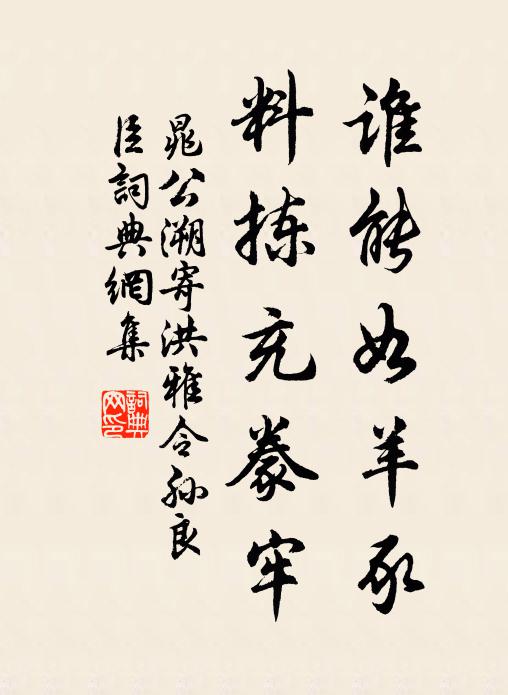 誰能如羊豕
料揀充豢牢
晁公溯寄洪雅令孙良
臣詞典網集
詞典
网印